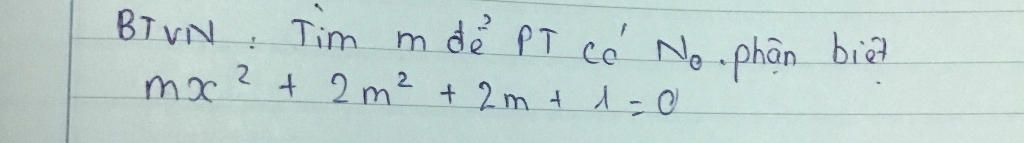 BTVN : Tìm m để PT có No phân biệt
mx² + 2m² + 2m + 1 = 0